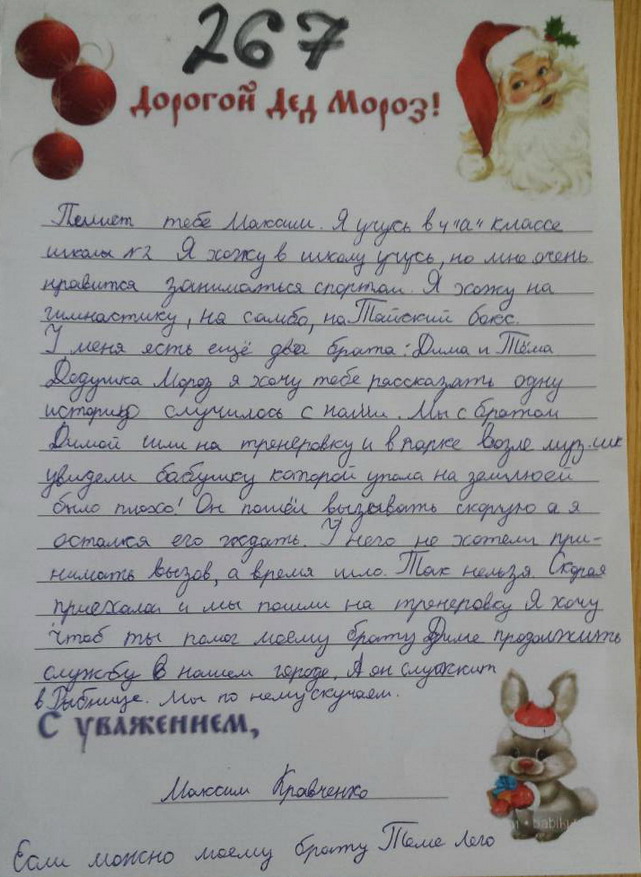 267
Дорогой Дед Мороз!
Пишет тебе Максим. Я учусь в 4 "а" классе
школы №2 Я хожу в школу учусь, но мне очень
нравится заниматься спортом. Я хожу на
гимнастику, на самбо, на Тайский бокс.
У меня есть ещё два брата: Дима и Тёма
Дедушка Мороз я хочу тебе рассказать одну
историю случилось с нами. Мы с братом
Димой шли на тренеровку и в парке возле муз. шк
увидели бабушку которой упала на землю ей
было плохо! Он пошёл вызывать скорую а я
остался его ждать. У него не хотели при-
нимать вызов, а время шло. Так нельзя. Скорая
приехала и мы пошли на тренеровку Я хочу
чтоб ты помог моему брату Диме продолжить
службу в нашем городе. А он служит
в Рыбнице. Мы по нему скучаем.
С уважением,
Максим Кравченко
Если можно моему брату Теме Лего